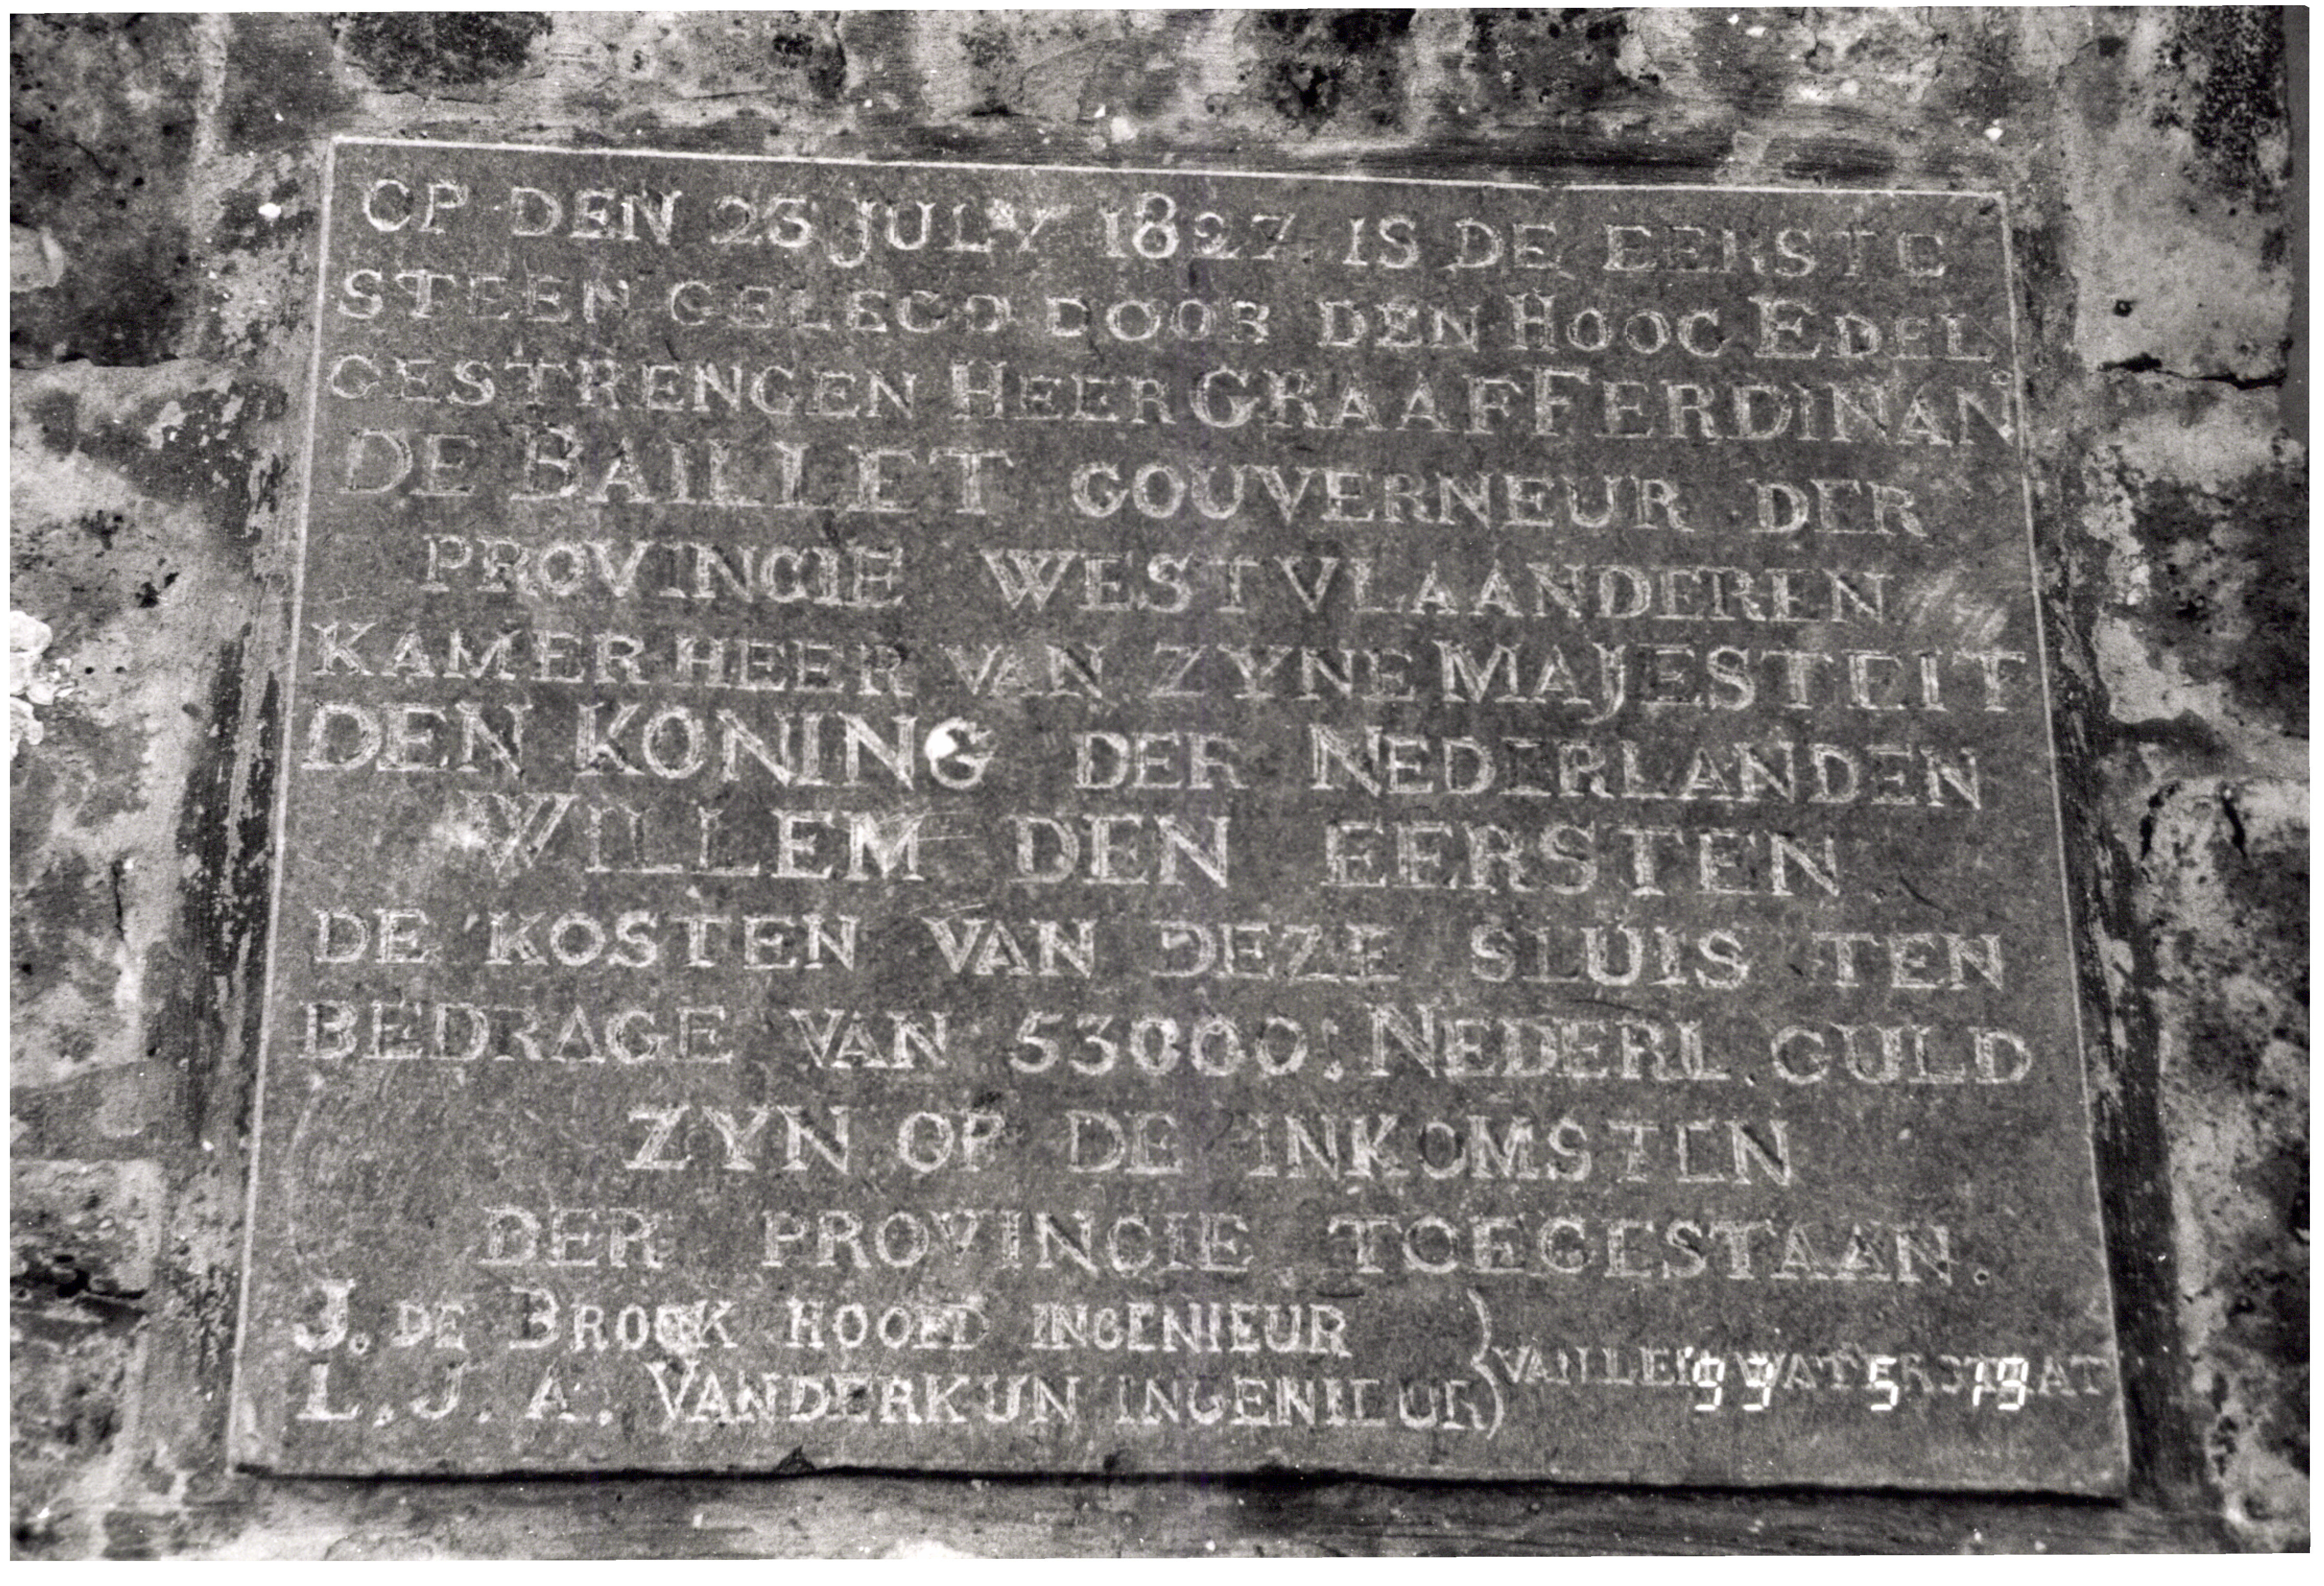 OP DEN 23 JULY 1827 IS DE EERSTE
STEEN GELEGD DOOR DEN HOOG EDEL
GESTRENGEN HEER GRAAF FERDINAN
DE BAILLET GOUVERNEUR DER
PROVINCIE WESTVLAANDEREN
KAMERHEER VAN ZYNE MAJESTEIT
DEN KONING DER NEDERLANDEN
WILLEM DEN EERSTEN
DE KOSTEN VAN DEZE SLUIS TEN
BEDRAGE VAN 53000: NEDERL. GULD
ZYN OP DE INKOMSTEN
DER PROVINCIE TOEGESTAAN.
J. DE BROCK HOOFD INGENIEUR
L. J. A. VANDERKUN INGENIEUR
WATERSTAAT
99 5 19